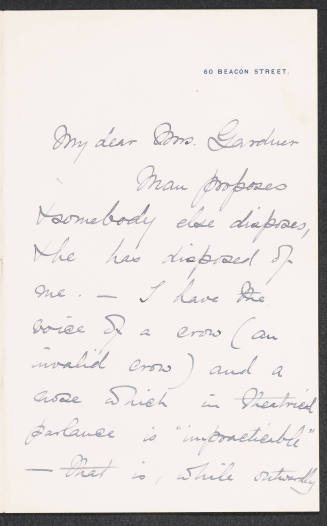 60 BEACON STREET.
My dear Mrs. Gardner
Man proposes
& somebody else disposes,
& he has disposed of
me. — I have the
voice of a crow (an
invalid crow) and a
nose which in theatrical
parlance is "impracticable"
— that is, while outwardly